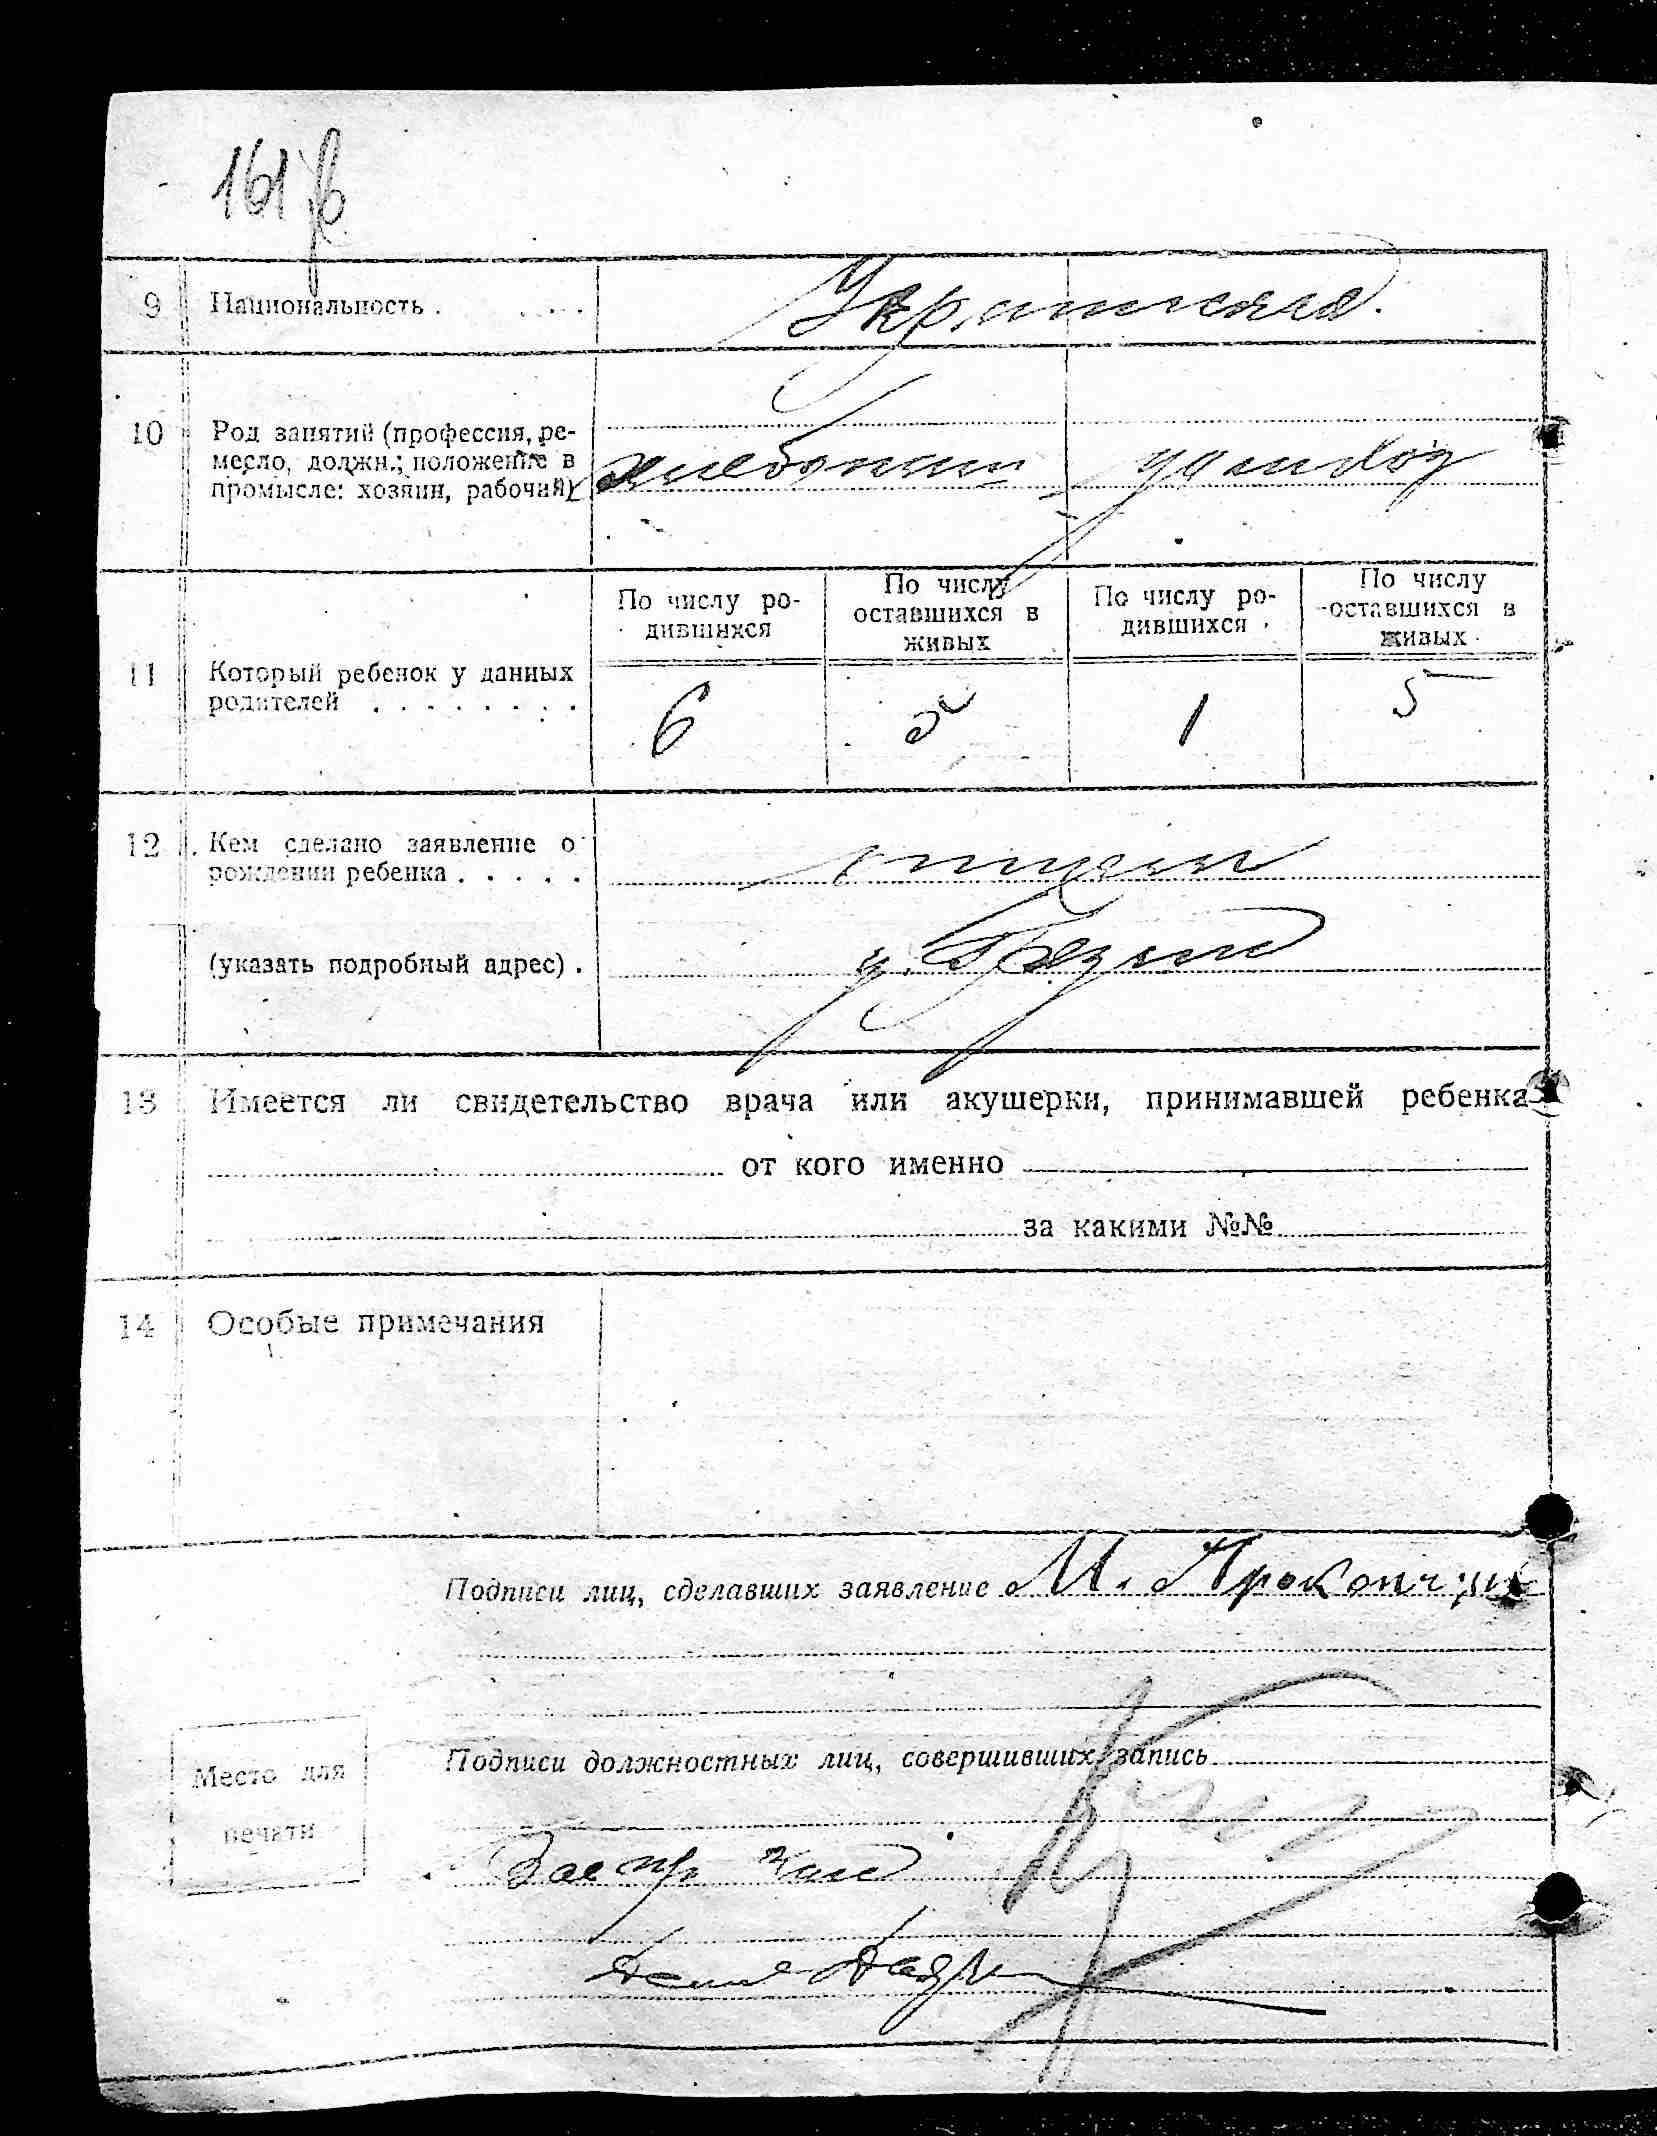 161
9 Национальность . . . . Украинская.
10 Род занятий (профессия, ре-
месло, должн.; положение в
промысле: хозяин, рабочий)
По числу ро-
дившихся
По числу
оставшихся в
живых
По числу ро-
дившихся
По числу
оставшихся в
живых
11 Который ребенок у данных
родителей . . . . . . . .
6 1 5
12 Кем сделано заявление о
рождении ребенка . . . . .
(указать подробный адрес) .
13 Имеется ли свидетельство врача или акушерки, принимавшей ребенка
от кого именно
за какими №№
14 Особые примечания
Подписи лиц, сделавших заявление М. Прокопчук
Подписи должностных лиц, совершивших запись
Место для
печати